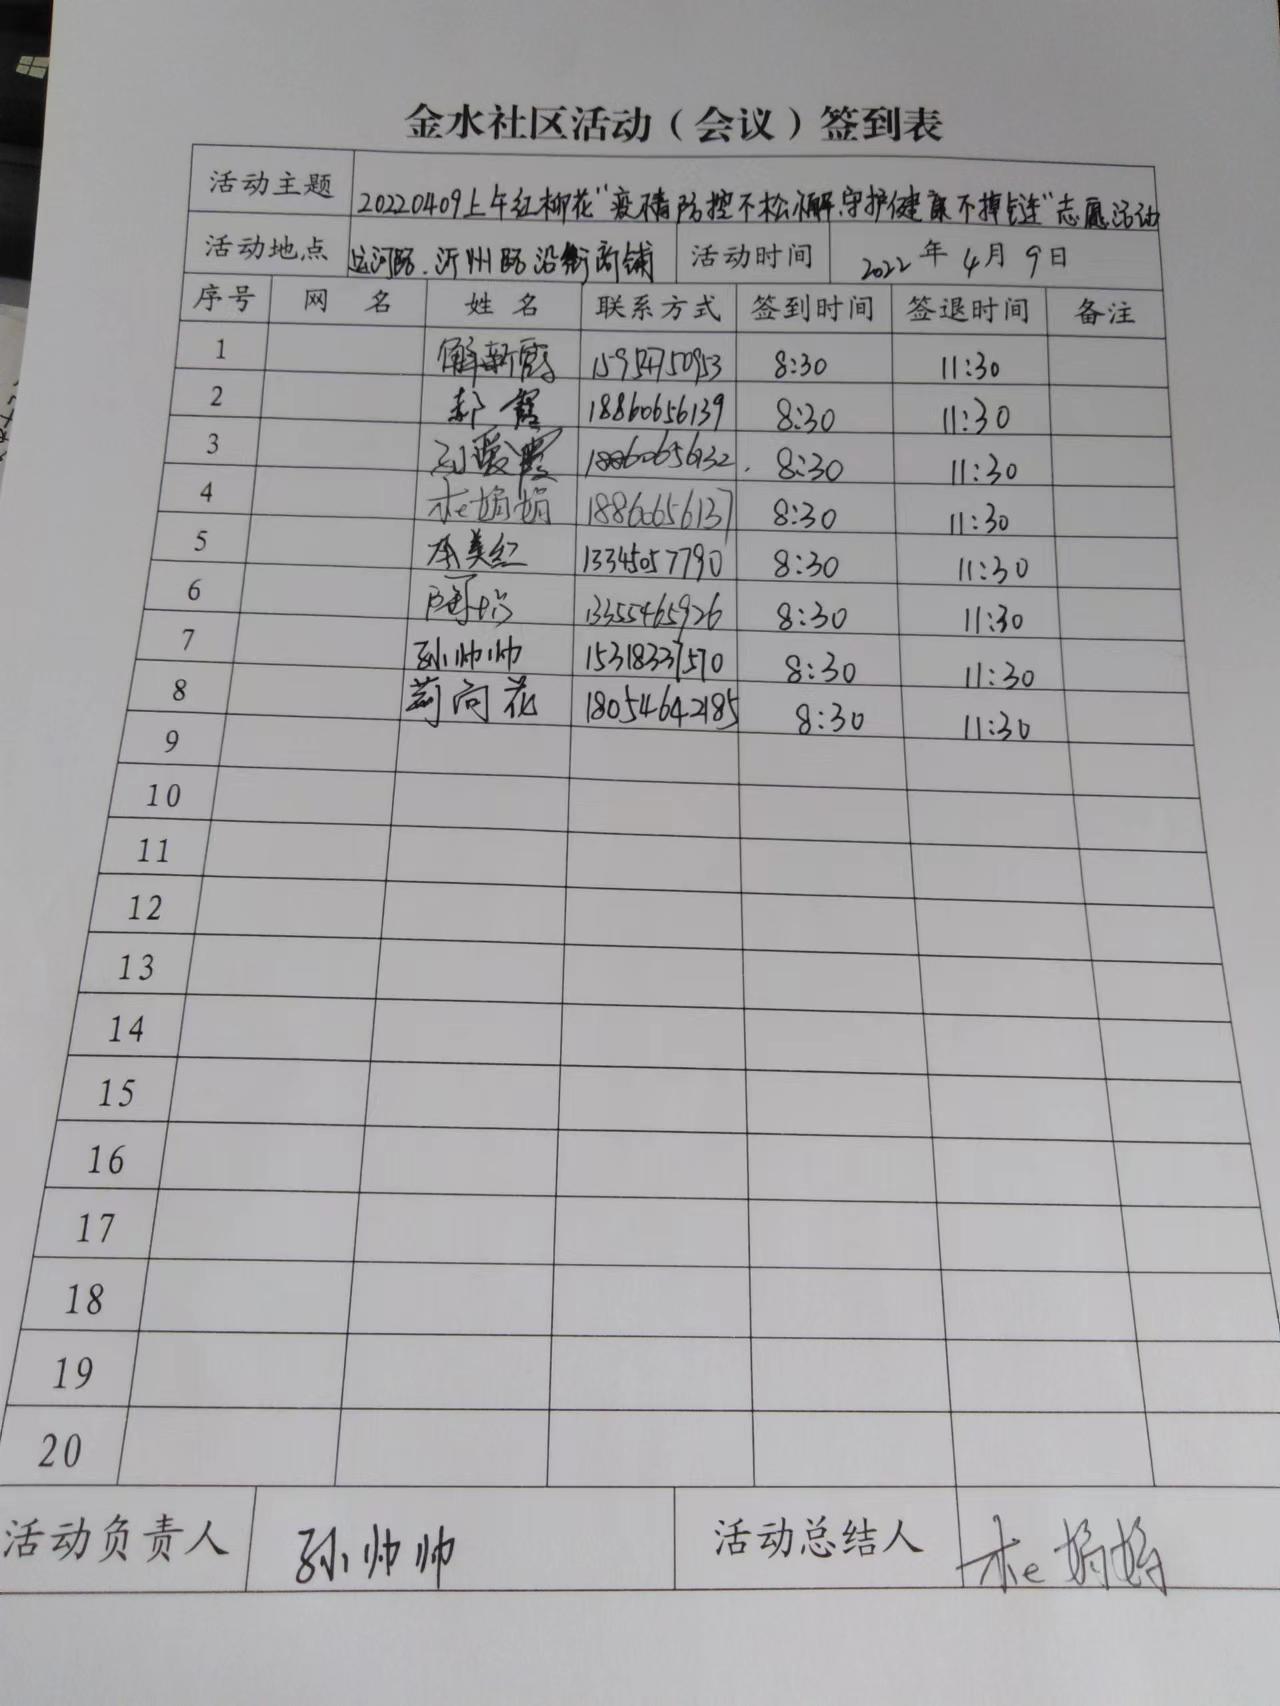 金水社区活动（会议）签到表
活动主题 20220409上午红柳花"疫情防控不松懈,守护健康不掉链"志愿活动
活动地点 运河路、沂州路沿街商铺 活动时间 2022年4月9日
序号 网 名 姓 名 联系方式 签到时间 签退时间 备注
1 解新霞 15954750953 8:30 11:30
2 郝霞 18860656139 8:30 11:30
3 刘爱霞 18860656132 8:30 11:30
4 娟娟 18860656137 8:30 11:30
5 李美红 13345057790 8:30 11:30
6 13355465926 8:30 11:30
7 孙帅帅 15318337570 8:30 11:30
8 荊向花 18054642185 8:30 11:30
9
10
11
12
13
14
15
16
17
18
19
20
活动负责人 孙帅帅 活动总结人 娟娟